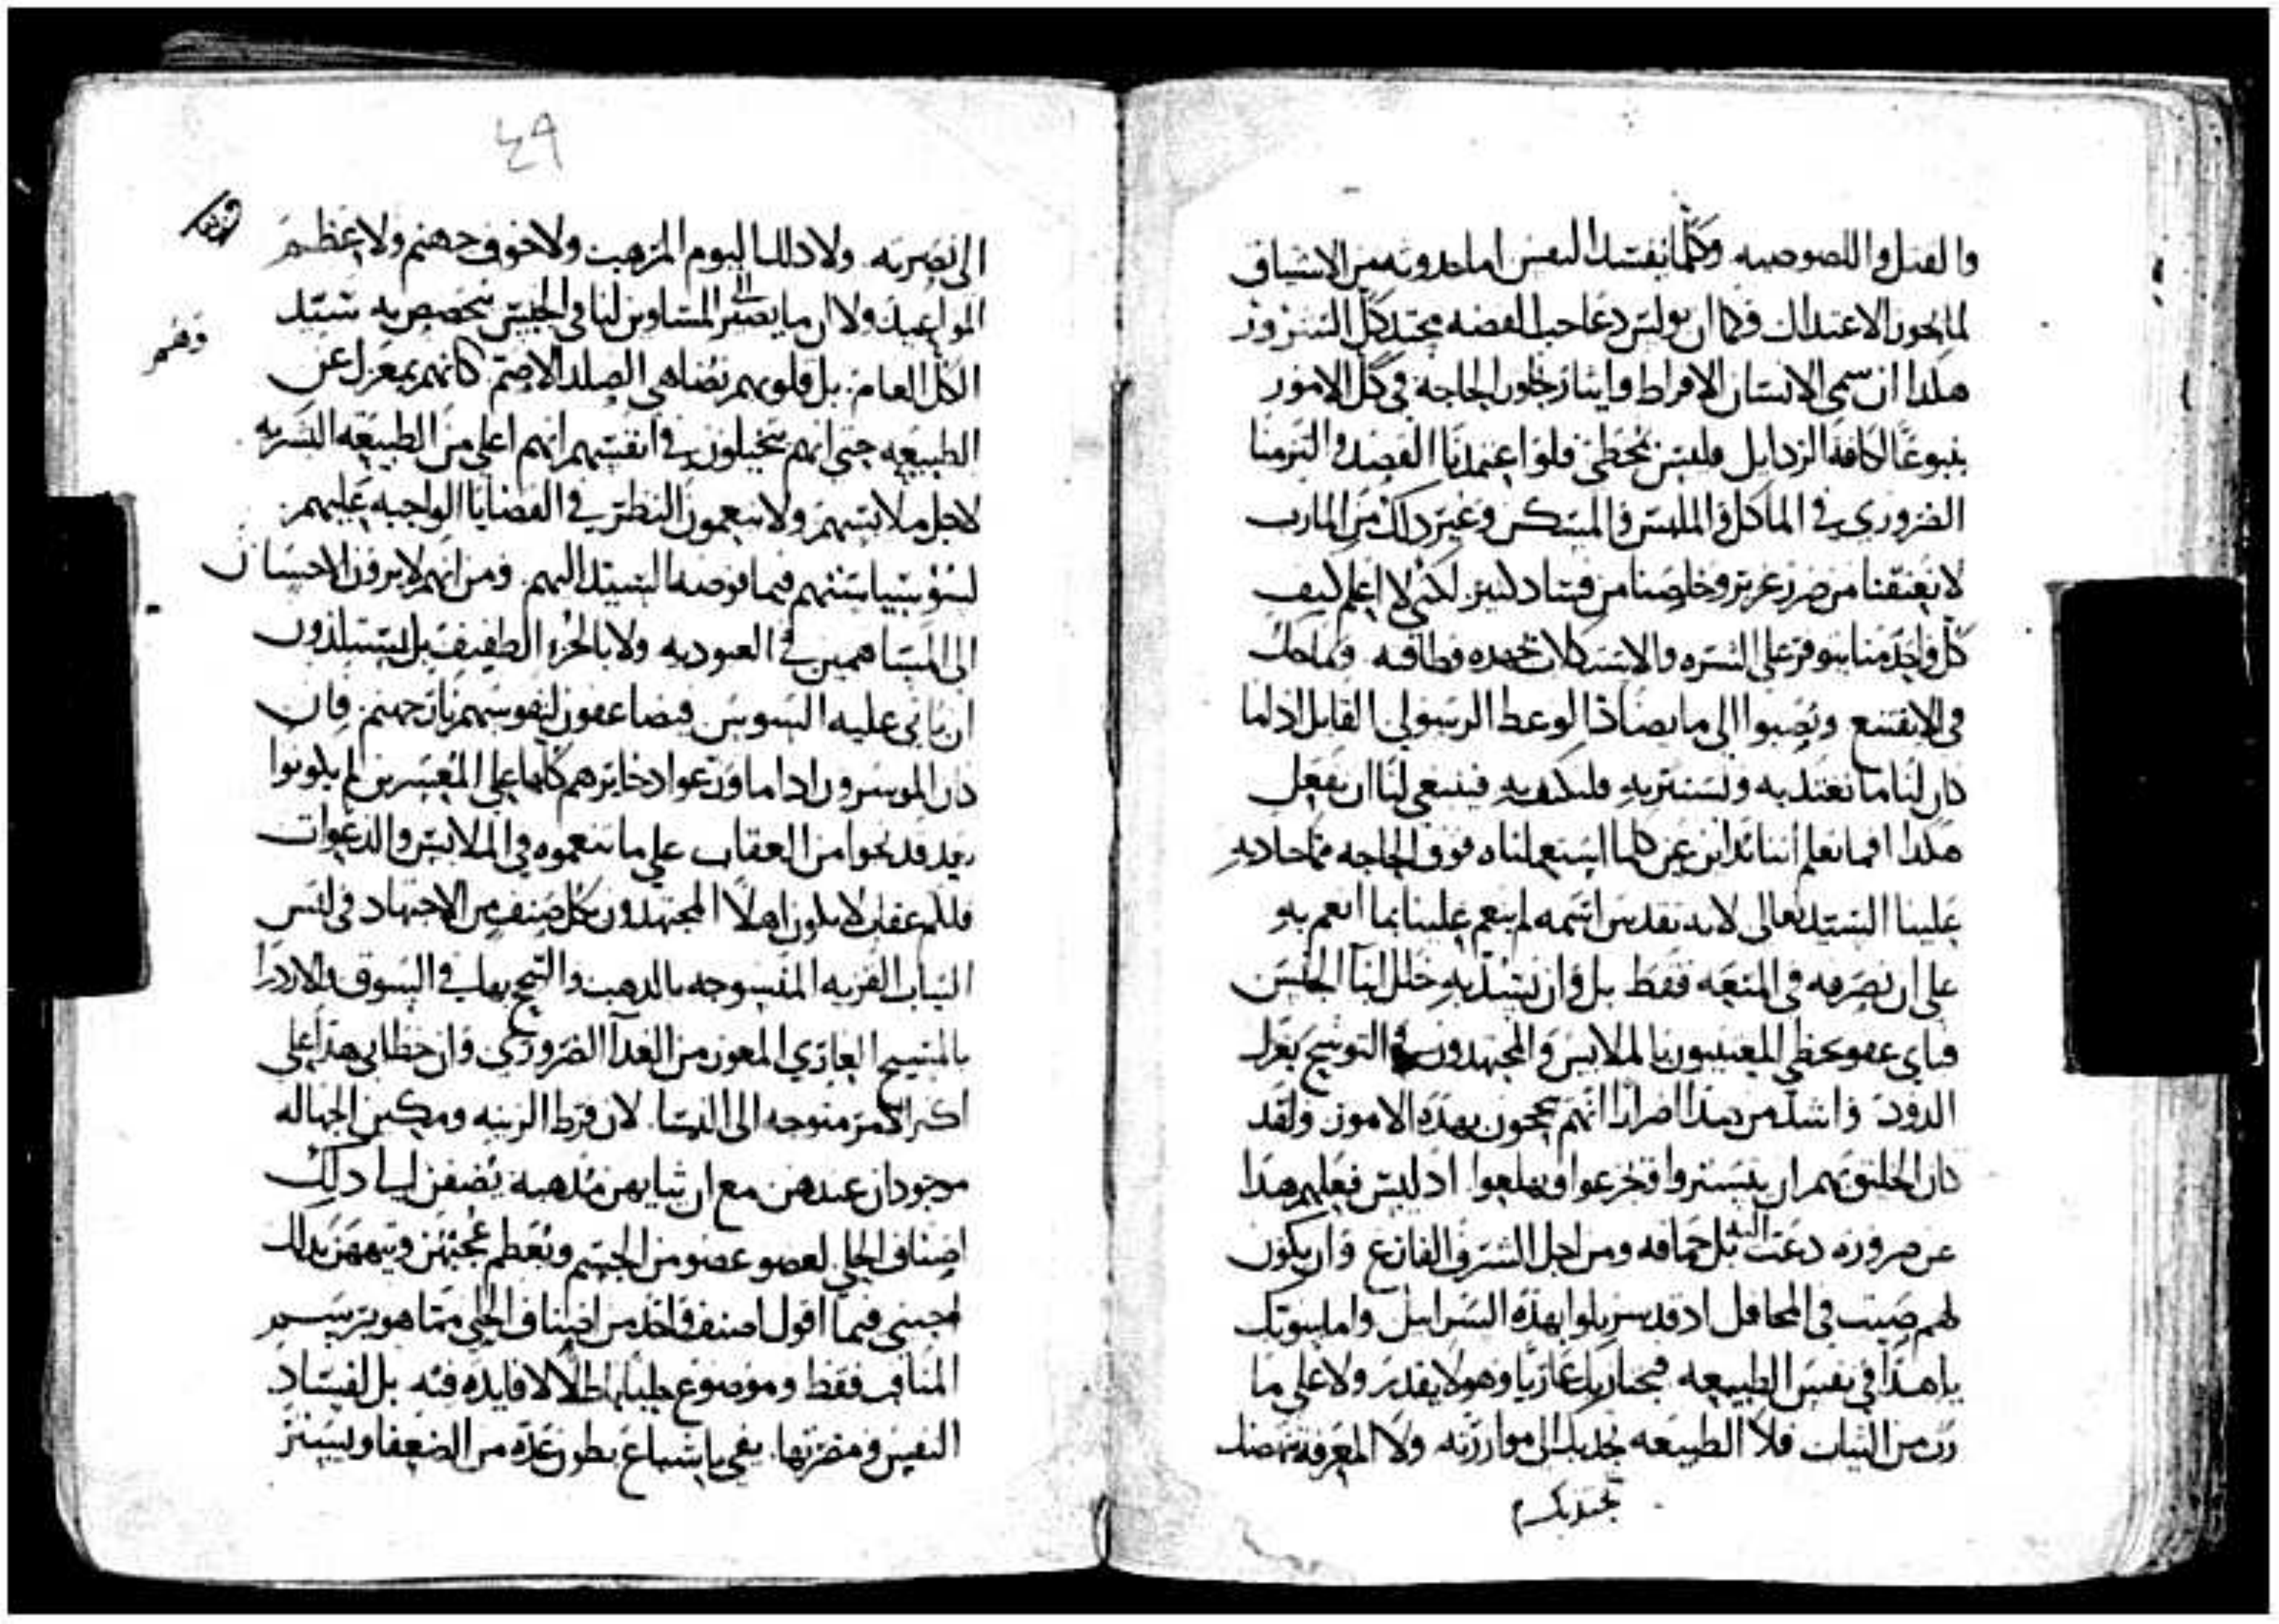 والقتل واللصوصيه وكلما يفسد النفس اما حدوثه من الاشياف
لما يخون الاعتدال فكما ان بولس دعا حب الفضه محتد كل الشرور
هكدا ان سمى الانسان الافراط وايثار خلون الحاجة في كل الامور
ينبوعًا لكافة الردايل فليس بمخطئ فلو اعتمدنا القصد والتزمنا
الضروري في الماكل والملبس والمسكن وغير ذلك من المارب
لانعتقنا من ضرر غرير وخلصنا من فساد كثير لكني لا اعلم كيف
كل واحد منا يتوفر على الشره والاستكلاب بجهده وطاقته وتماحك
في الا نقتنع ونصبوا الى ما يضاد الوعظ الرسولي القايل اذا ما
كان لنا ما نغتذي به ونستتر به فلنكتف به فينبغي لنا ان نفعل
هكدا افما نعلم اننا ندان عن كلما استعملناه فوق الحاجه مما جاد به
علينا السيد تعالى لانه تقدس اسمه لم ينعم علينا بما انعم به
على ان نصرفه في المتعه فقط بل وان نسد به خلل ابنا الجنس
فباي عفو يحظى المعنيون بالملابس والمجتهدون في التوشح بغزل
الدود واشد من هدا اضرارًا انهم يبجحون بهذه الامور ولقد
كان الخليق بهم ان يستتروا ويجزعوا ويهلعوا اد ليس فعلهم هدا
عن ضروره دعت اليه بل حماقه ومن اجل الشرف الفارغ وان يكون
لهم صيت في المحافل اد قد سربلوا بهذه السرابيل واما شريكك
يا هدا في نفس الطبيعه فيجتاز بك عاريًا وهو لا يقدر ولا على ما
رث من الثياب فلا الطبيعه تجذبك الى موازرته ولا المعرفة تنهضك
تجذبك م
٤٩
الى نصرته ولا دلك اليوم المرهب ولا خوف جهنم ولا عظم
المواعيد ولا ان ما يصير الى المساوين لنا في الجنس يختص به سيد
الكل العام بل قلوبهم تضاهي الصلد الاصم كانهم بمعزل عن
الطبيعه حتى انهم يتخيلون في انفسهم انهم اعلى من الطبيعه البشريه
لاجل ملابسهم ولا ينعمون النظر في القضايا الواجبه عليهم
لسوء سياستهم فيما فوضه السيد اليهم ومن انهم لا يرون الاحسان
الى المساهمين في العبوديه ولا بالجزء الطفيف بل يستلذون
ان ياتي عليه السوس فيضاعفون لنفوسهم نار جهنم فان
كان الموسرون ادا ما وزعوا دخايرهم كلها على المعسرين لم يكونوا
بعد قد نجوا من العقاب على ما تنعموه في الملابس والدعوات
فلكم عقاب لا يكون اهلًا المجتهدون بكل صنف من الاجتهاد في لبس
الثياب القزيه المنسوجه بالدهب والتبجح بها في السوق والازدرا
بالمسيح العاري المعوز من الغدآ الضروري وان خطابي هذا على
اكثر الامر متوجه الى النسا لان فرط الزينه ومكين الجهاله
موجودان عندهن مع ان ثيابهن مدهبه يضفن الى ذلك
اصناف الحلي لعضو عضو من الجسم وتعظم عجبهن وتيههن بذلك
اجبني فيما اقول اصنف واحد من اصناف الحلي مما هو برسم
المناقب فقط وموضوع حليًا باطلًا لا فايده فيه بل لفساد
النفس ومضرتها يفي باشباع بطون عدة من الضعفا ويستر